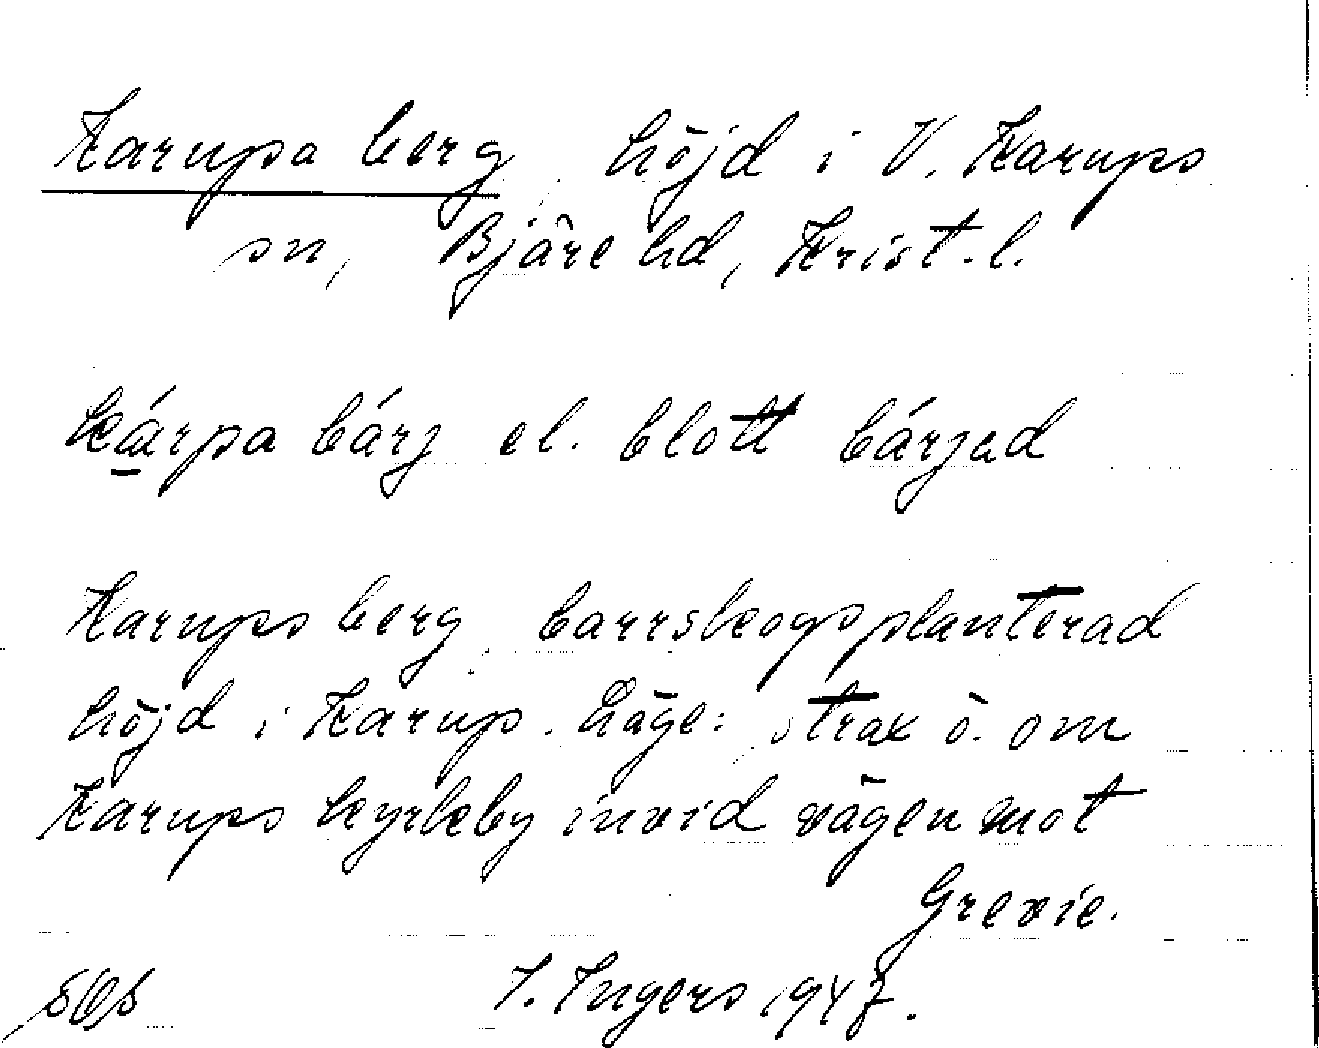 Karupa berg, höjd i V. Karups
sn, Bjäre hd, Krist. l.
kárpa bárj el. blott bárjad
Karups berg, barrskogsplanterad
höjd i Karup. Läge: strax ö. om
Karups kyrkby invid vägen mot
Grevie.
I. Ingers 1947.